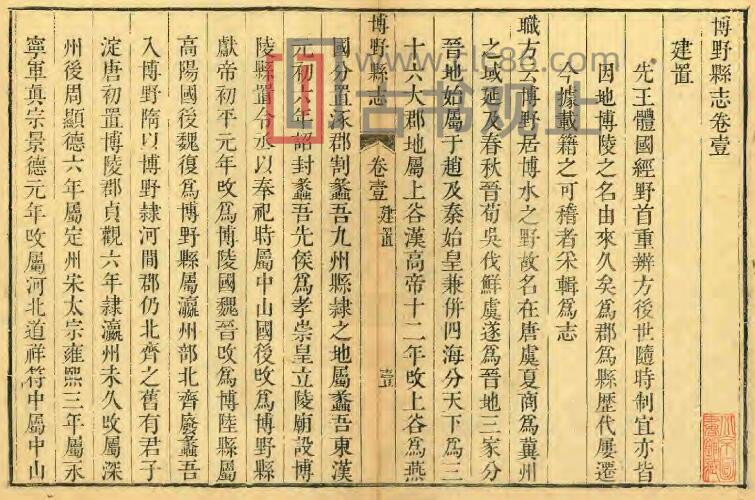 博野縣志卷壹
建置
先王體國經野首重辨方後世隨時制宜亦皆
因地博陵之名由來久矣為郡為縣歷代屢遷
今據載籍之可稽者采輯為志
職方云博野居博水之野故名在唐虞夏商為冀州
之域延及春秋晉荀吳伐鮮虞遂為晉地三家分
晉地始屬于趙及秦始皇兼併四海分天下為三
十六大郡地屬上谷漢高帝十二年改上谷為燕
博野縣志
卷壹
建置
壹
國分置涿郡割蠡吾九州縣隸之地屬蠡吾東漢
元初六年詔封蠡吾先侯為孝崇皇立陵廟設博
陵縣置令丞以奉祀時屬中山國後改為博野縣
獻帝初平元年改為博陵國魏晉改為博陸縣屬
高陽國後魏復為博野縣屬瀛州部北齊廢蠡吾
入博野隋以博野隸河間郡仍北齊之舊有君子
淀唐初置博陵郡貞觀六年隸瀛州未久改屬深
州後周顯德六年屬定州宋太宗雍熙三年屬永
寧軍真宗景德元年改屬河北道祥符中屬中山
www.tlc88.com
古书观止